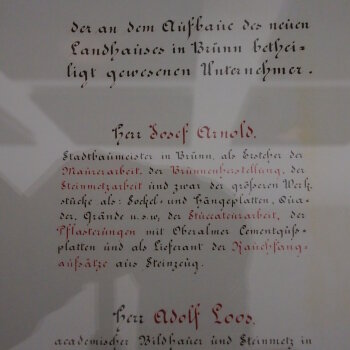 der an dem Aufbaue des neuen
Landhauses in Brünn bethei-
ligt gewesenen Unternehmer.
Herr Josef Arnold,
Stadtbaumeister in Brünn, als Ersteher der
Maurerarbeit, der Brunnenherstellung, der
Steinmetzarbeit und zwar der größeren Werk-
stücke als: Sockel- und Hängeplatten, Qua-
der, Grände u.s.w., der Stuccateurarbeit, der
Pflasterungen mit Oberalmer Cementguß-
platten und als Lieferant der Rauchfang-
aufsätze aus Steinzeug.
Herr Adolf Loos,
academischer Bildhauer und Steinmetz in